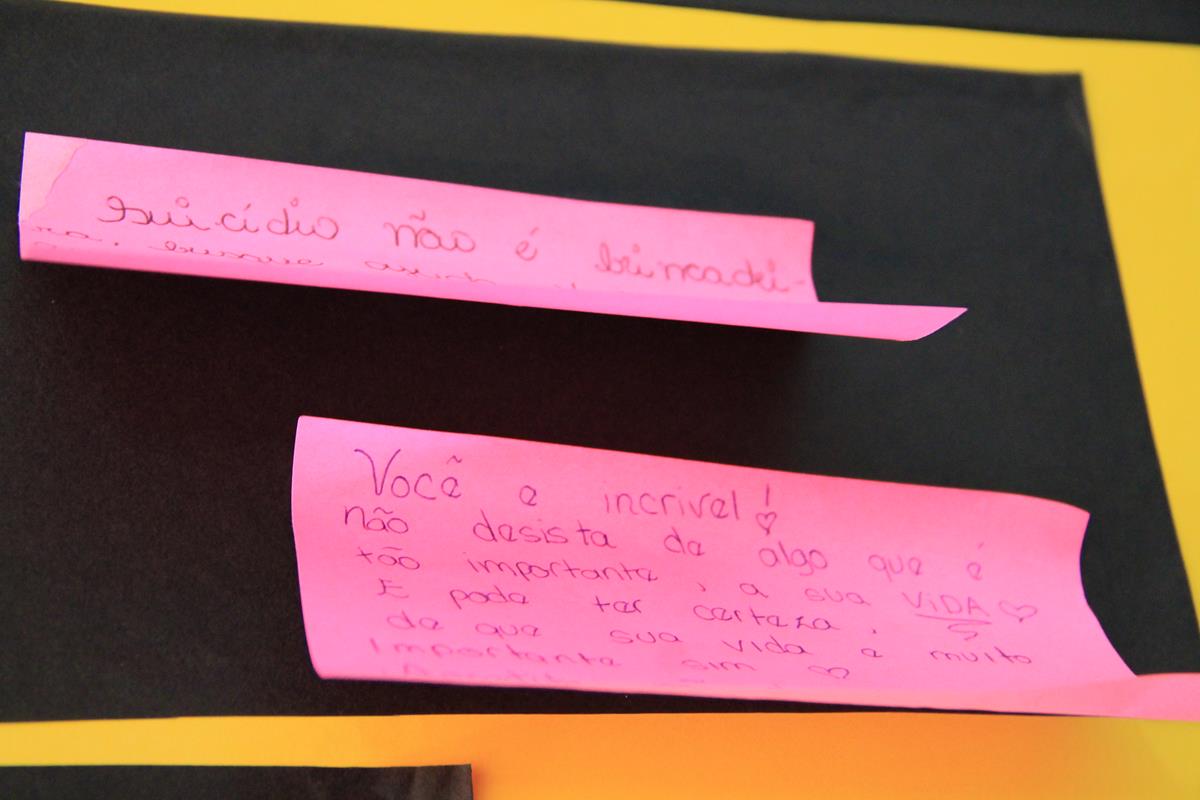 suicídio não é brincadei-
ra, busque
Você e incrivel! ♡
não desista de algo que é
tão importante, a sua VIDA ♡
E pode ter certeza,
de que sua vida e muito
Importante sim ♡